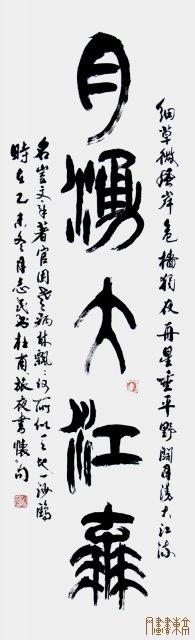 細草微風岸危檣獨夜舟星垂平野闊月湧大江流
月湧大江流
名豈文章著官因老病休飄〻何所似天地一沙鷗
時在乙未冬月志民書杜甫旅夜書懷句